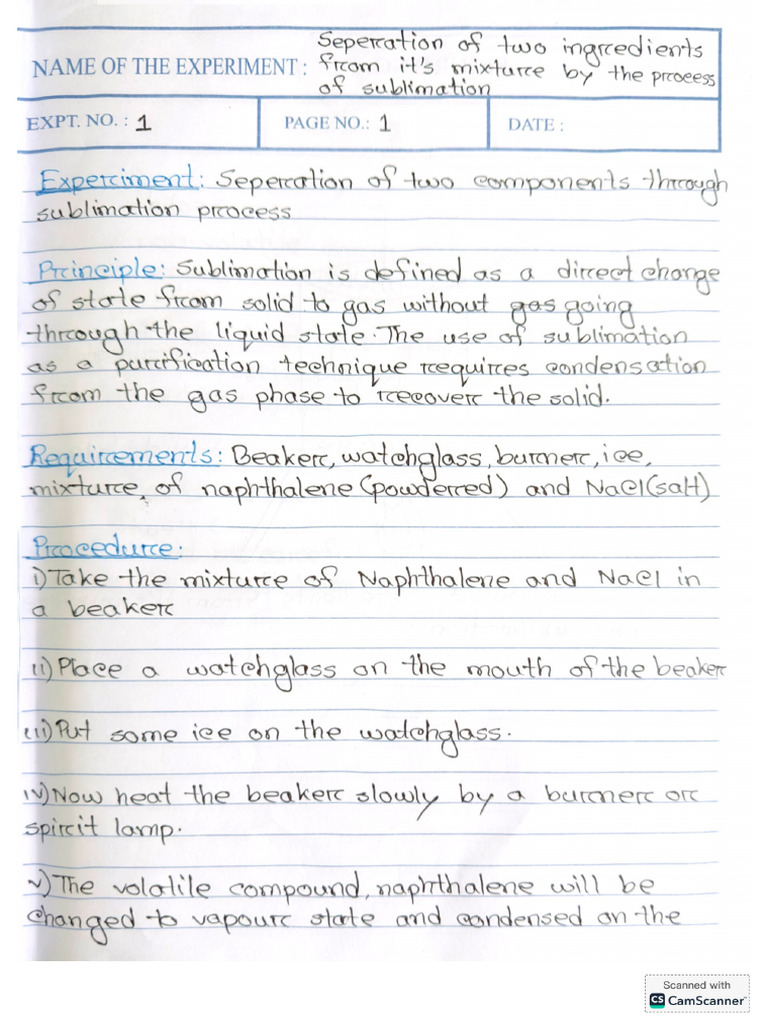 Seperation of two ingredients
NAME OF THE EXPERIMENT : from it's mixture by the process
of sublimation
EXPT. NO. : 1 PAGE NO.: 1 DATE :
Experiment: Seperation of two components through
sublimation process
Principle: Sublimation is defined as a direct change
of state from solid to gas without gas going
through the liquid state. The use of sublimation
as a purification technique requires condensation
from the gas phase to recover the solid.
Requirements: Beaker, watchglass, burner, ice,
mixture, of naphthalene (powderred) and NaCl(salt)
Procedure:
i) Take the mixture of Naphthalene and NaCl in
a beaker
ii) Place a watchglass on the mouth of the beaker
iii) Put some ice on the watchglass.
iv) Now heat the beaker slowly by a burner or
spirit lamp.
v) The volatile compound, naphthalene will be
changed to vapour state and condensed on the
Scanned with
CS CamScanner